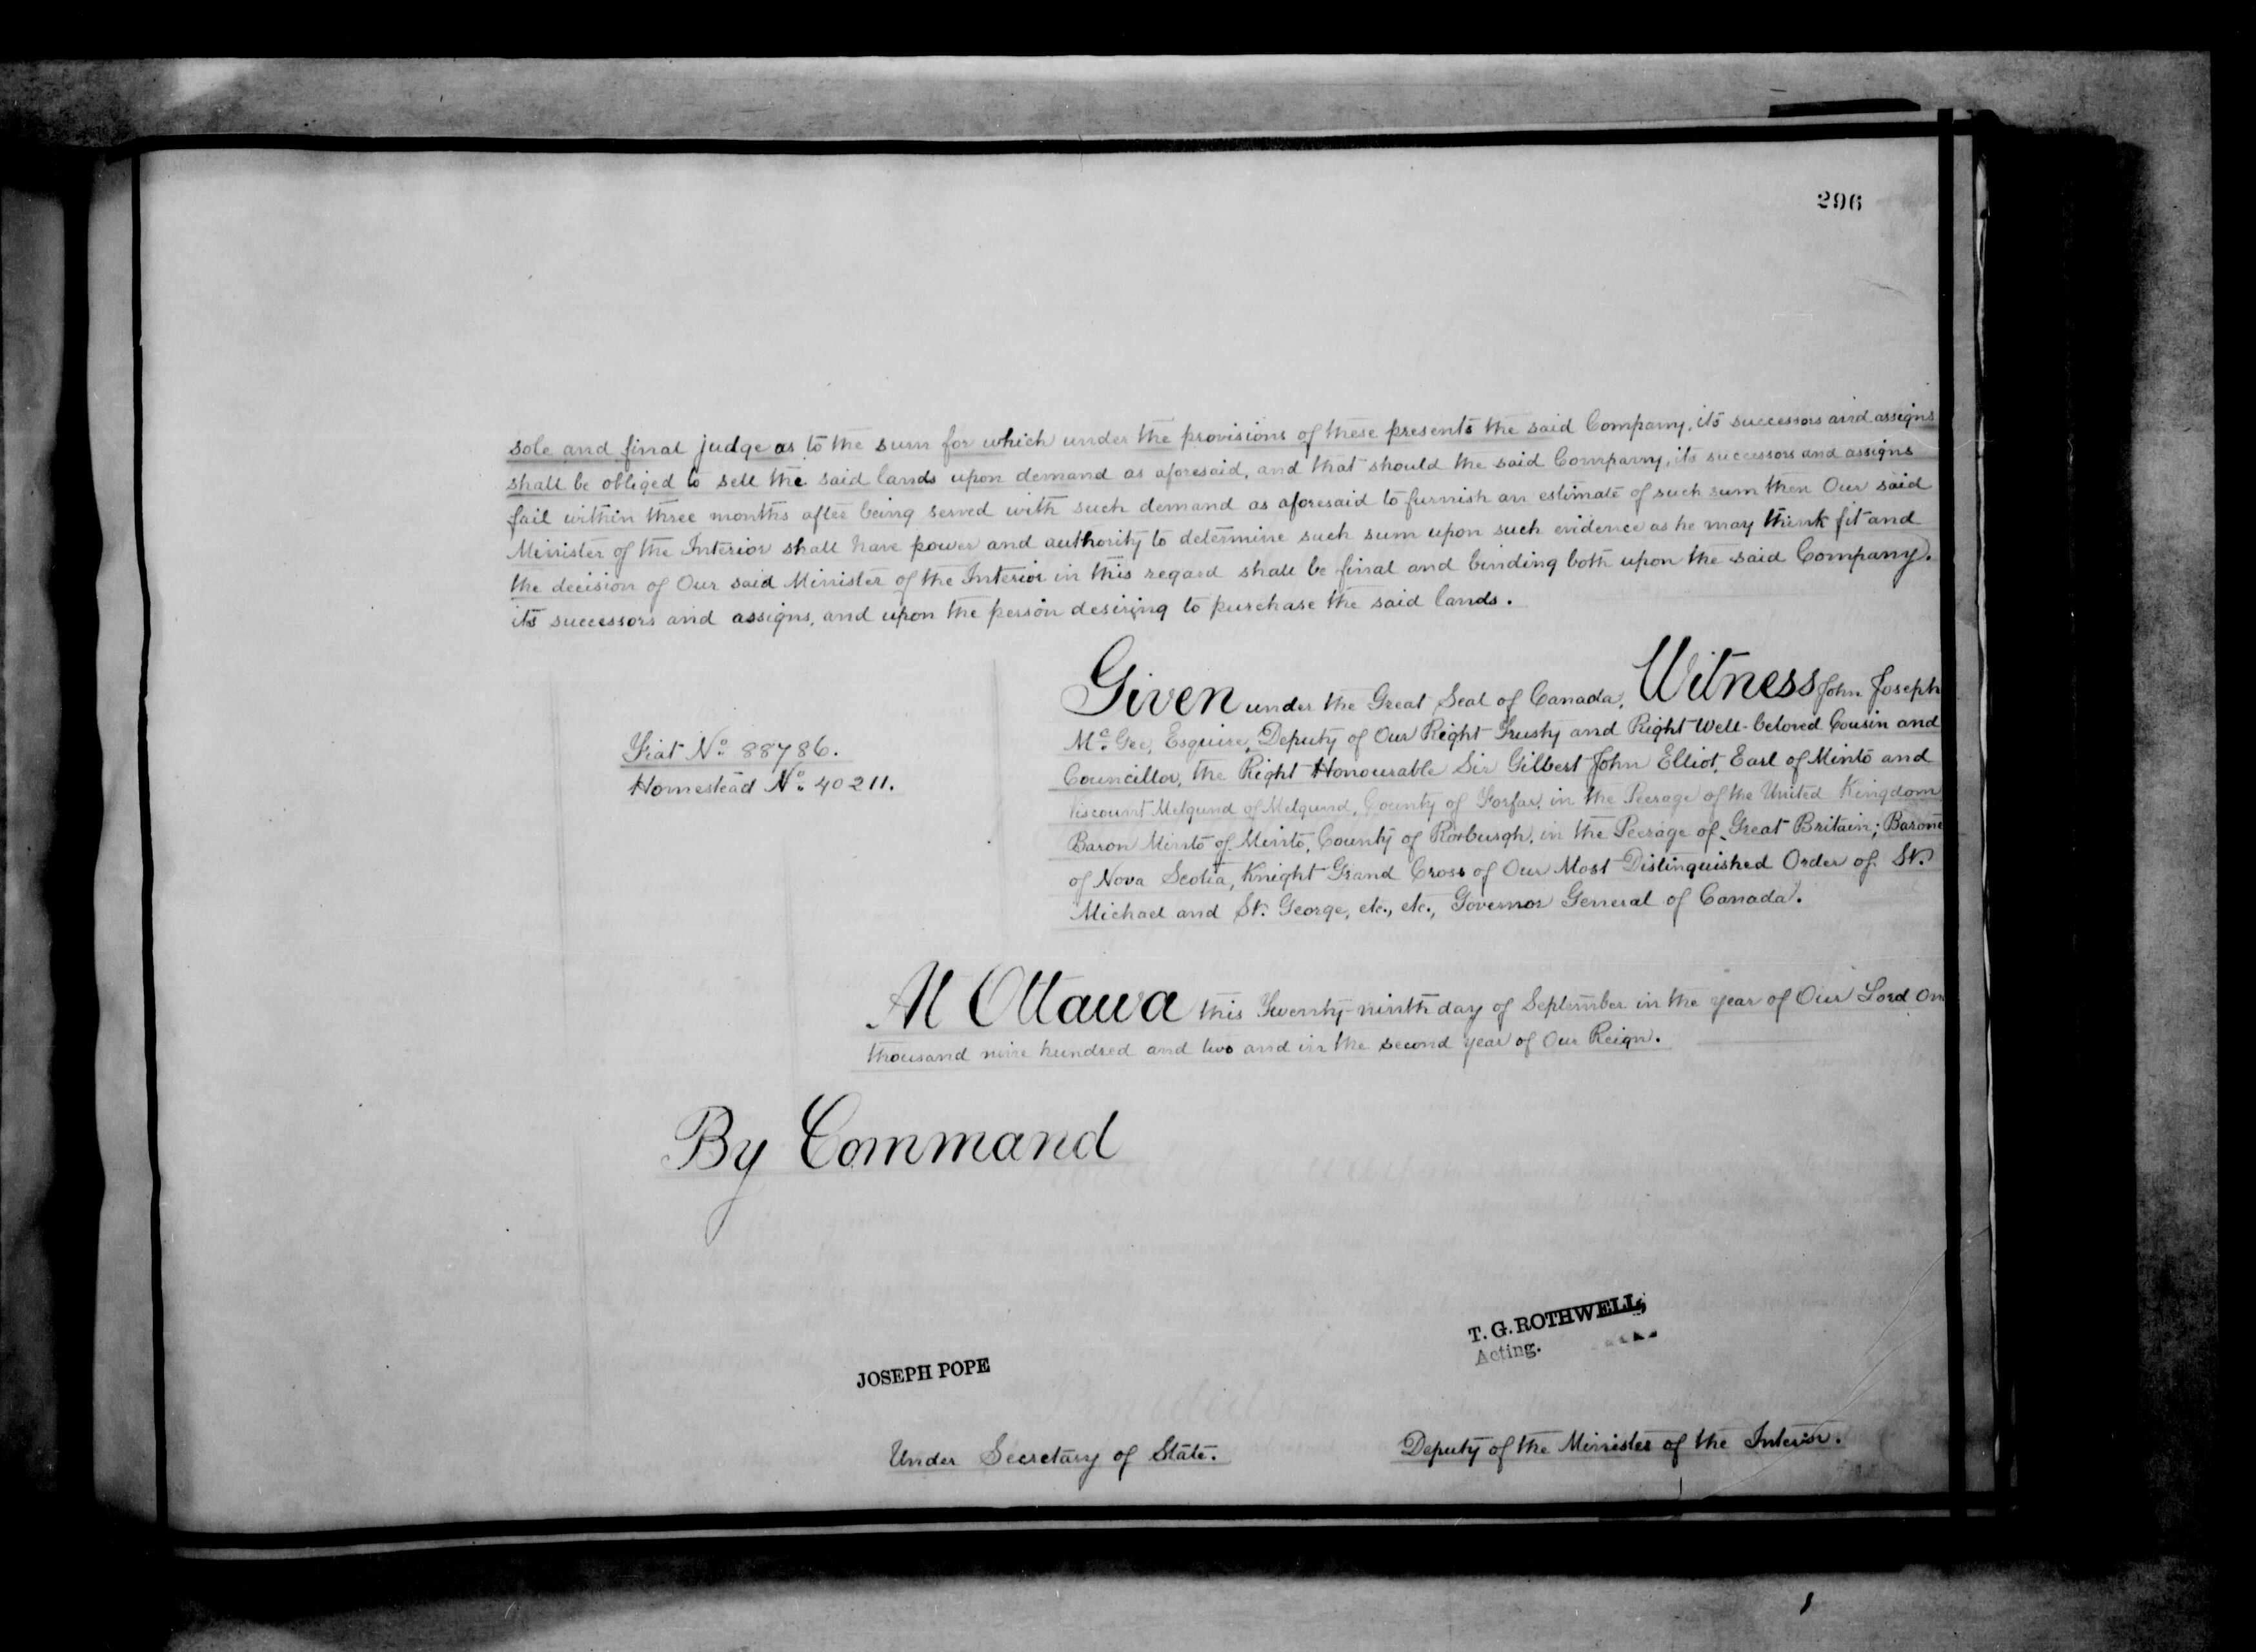 296
sole and final judge as to the sum for which under the provisions of these presents the said Company, its successors and assigns
shall be obliged to sell the said lands upon demand as aforesaid, and that should the said Company, its successors and assigns
fail within three months after being served with such demand as aforesaid to furnish an estimate of such sum then Our said
Minister of the Interior shall have power and authority to determine such sum upon such evidence as he may think fit and
the decision of Our said Minister of the Interior in this regard shall be final and binding both upon the said Company,
its successors and assigns, and upon the person desiring to purchase the said lands.
Given under the Great Seal of Canada, Witness John Joseph
McGee, Esquire, Deputy of Our Right Trusty and Right Well-beloved Cousin and
Councillor, the Right Honourable Sir Gilbert John Elliot, Earl of Minto and
Viscount Melgund of Melgund, County of Forfar, in the Peerage of the United Kingdom
Baron Minto of Minto, County of Roxburgh, in the Peerage of Great Britain; Barone
of Nova Scotia, Knight Grand Cross of Our Most Distinguished Order of St.
Michael and St. George, etc., etc., Governor General of Canada.
Fiat No. 88786.
Homestead No. 40211.
At Ottawa this Twenty-ninth day of September in the year of Our Lord On
thousand nine hundred and two and in the second year of Our Reign.
By Command
T. G. ROTHWELL,
Acting.
JOSEPH POPE
Under Secretary of State.
Deputy of the Minister of the Interior.